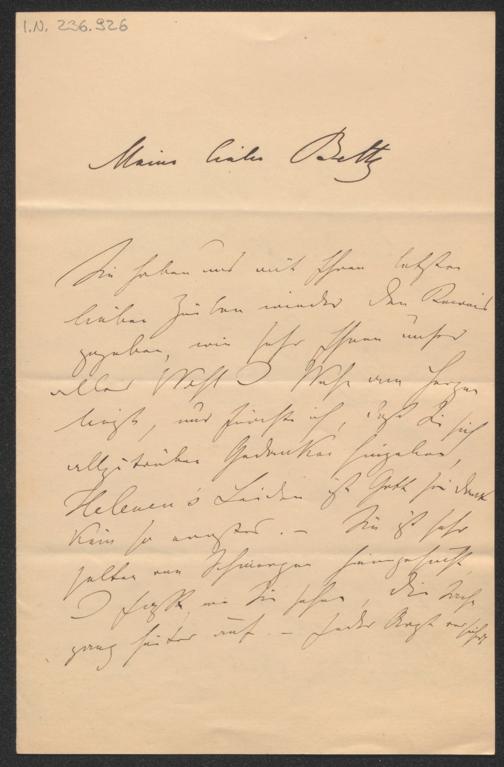 I.N. 236.926
Meine liebe Betty
Sie haben uns mit Ihren letzten
lieben Zeilen wieder den Beweis
gegeben, wie sehr Ihnen unser
aller Wohl & Wehe am Herzen
liegt, nur fürchte ich, daß Sie sich
allzutrüben Gedanken hingeben,
Helenen's Leiden ist Gott sei Dank
kein so ernstes. – Sie ist sehr
selten von Schmerzen heimgesucht,
& faßt, wie Sie sehen, die Sache
ganz heiter auf. – Jeder Arzt